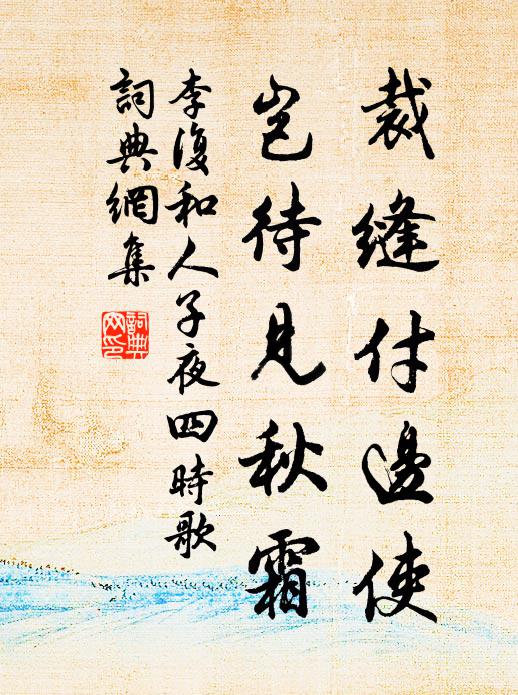 裁縫付邊使
豈待見秋霜
李復和人子夜四時歌
詞典網集
詞典網印